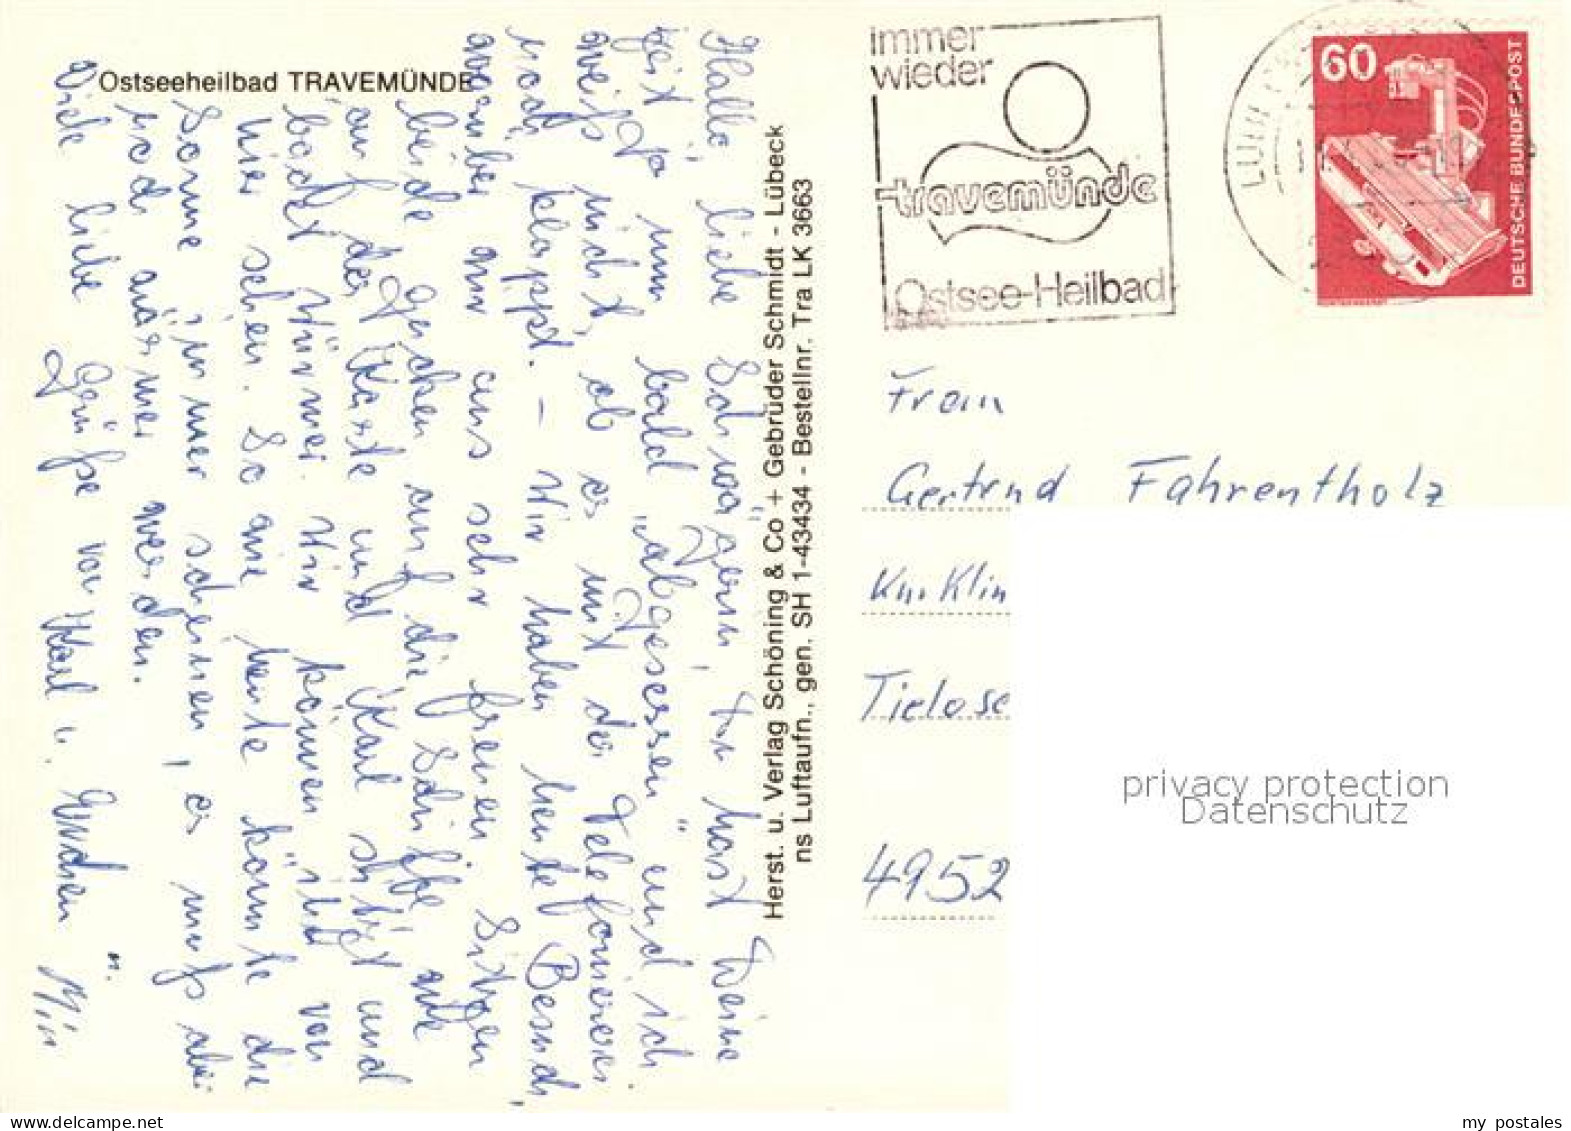 Ostseeheilbad TRAVEMÜNDE
Hallo, liebe Schwägerin, Du hast Deine
Zeit ja nun bald "abgesessen" und ich
weiß nicht, ob es mit der Telefoniererei
noch klappt. – Wir haben heute Besuch,
worüber wir uns sehr freuen. Sitzen
beide gucken auf die Schiffe, wie
auf der Karte und Karl sitzt und
backt Würmer. Wir können ihn von
hier sehen. So wie heute könnte die
Sonne immer scheinen, es muß aber
noch wärmer werden.
Viele liebe Grüße von Karl u.
Herst. u. Verlag Schöning & Co + Gebrüder Schmidt - Lübeck
ns Luftaufn., gen. SH 1-43434 - Bestellnr. Tra LK 3663
immer
wieder
travemünde
Ostsee-Heilbad
60
DEUTSCHE BUNDESPOST
Frau
Gertrud Fahrentholz
Klin
Tielose
4952
privacy protection
Datenschutz
my postales